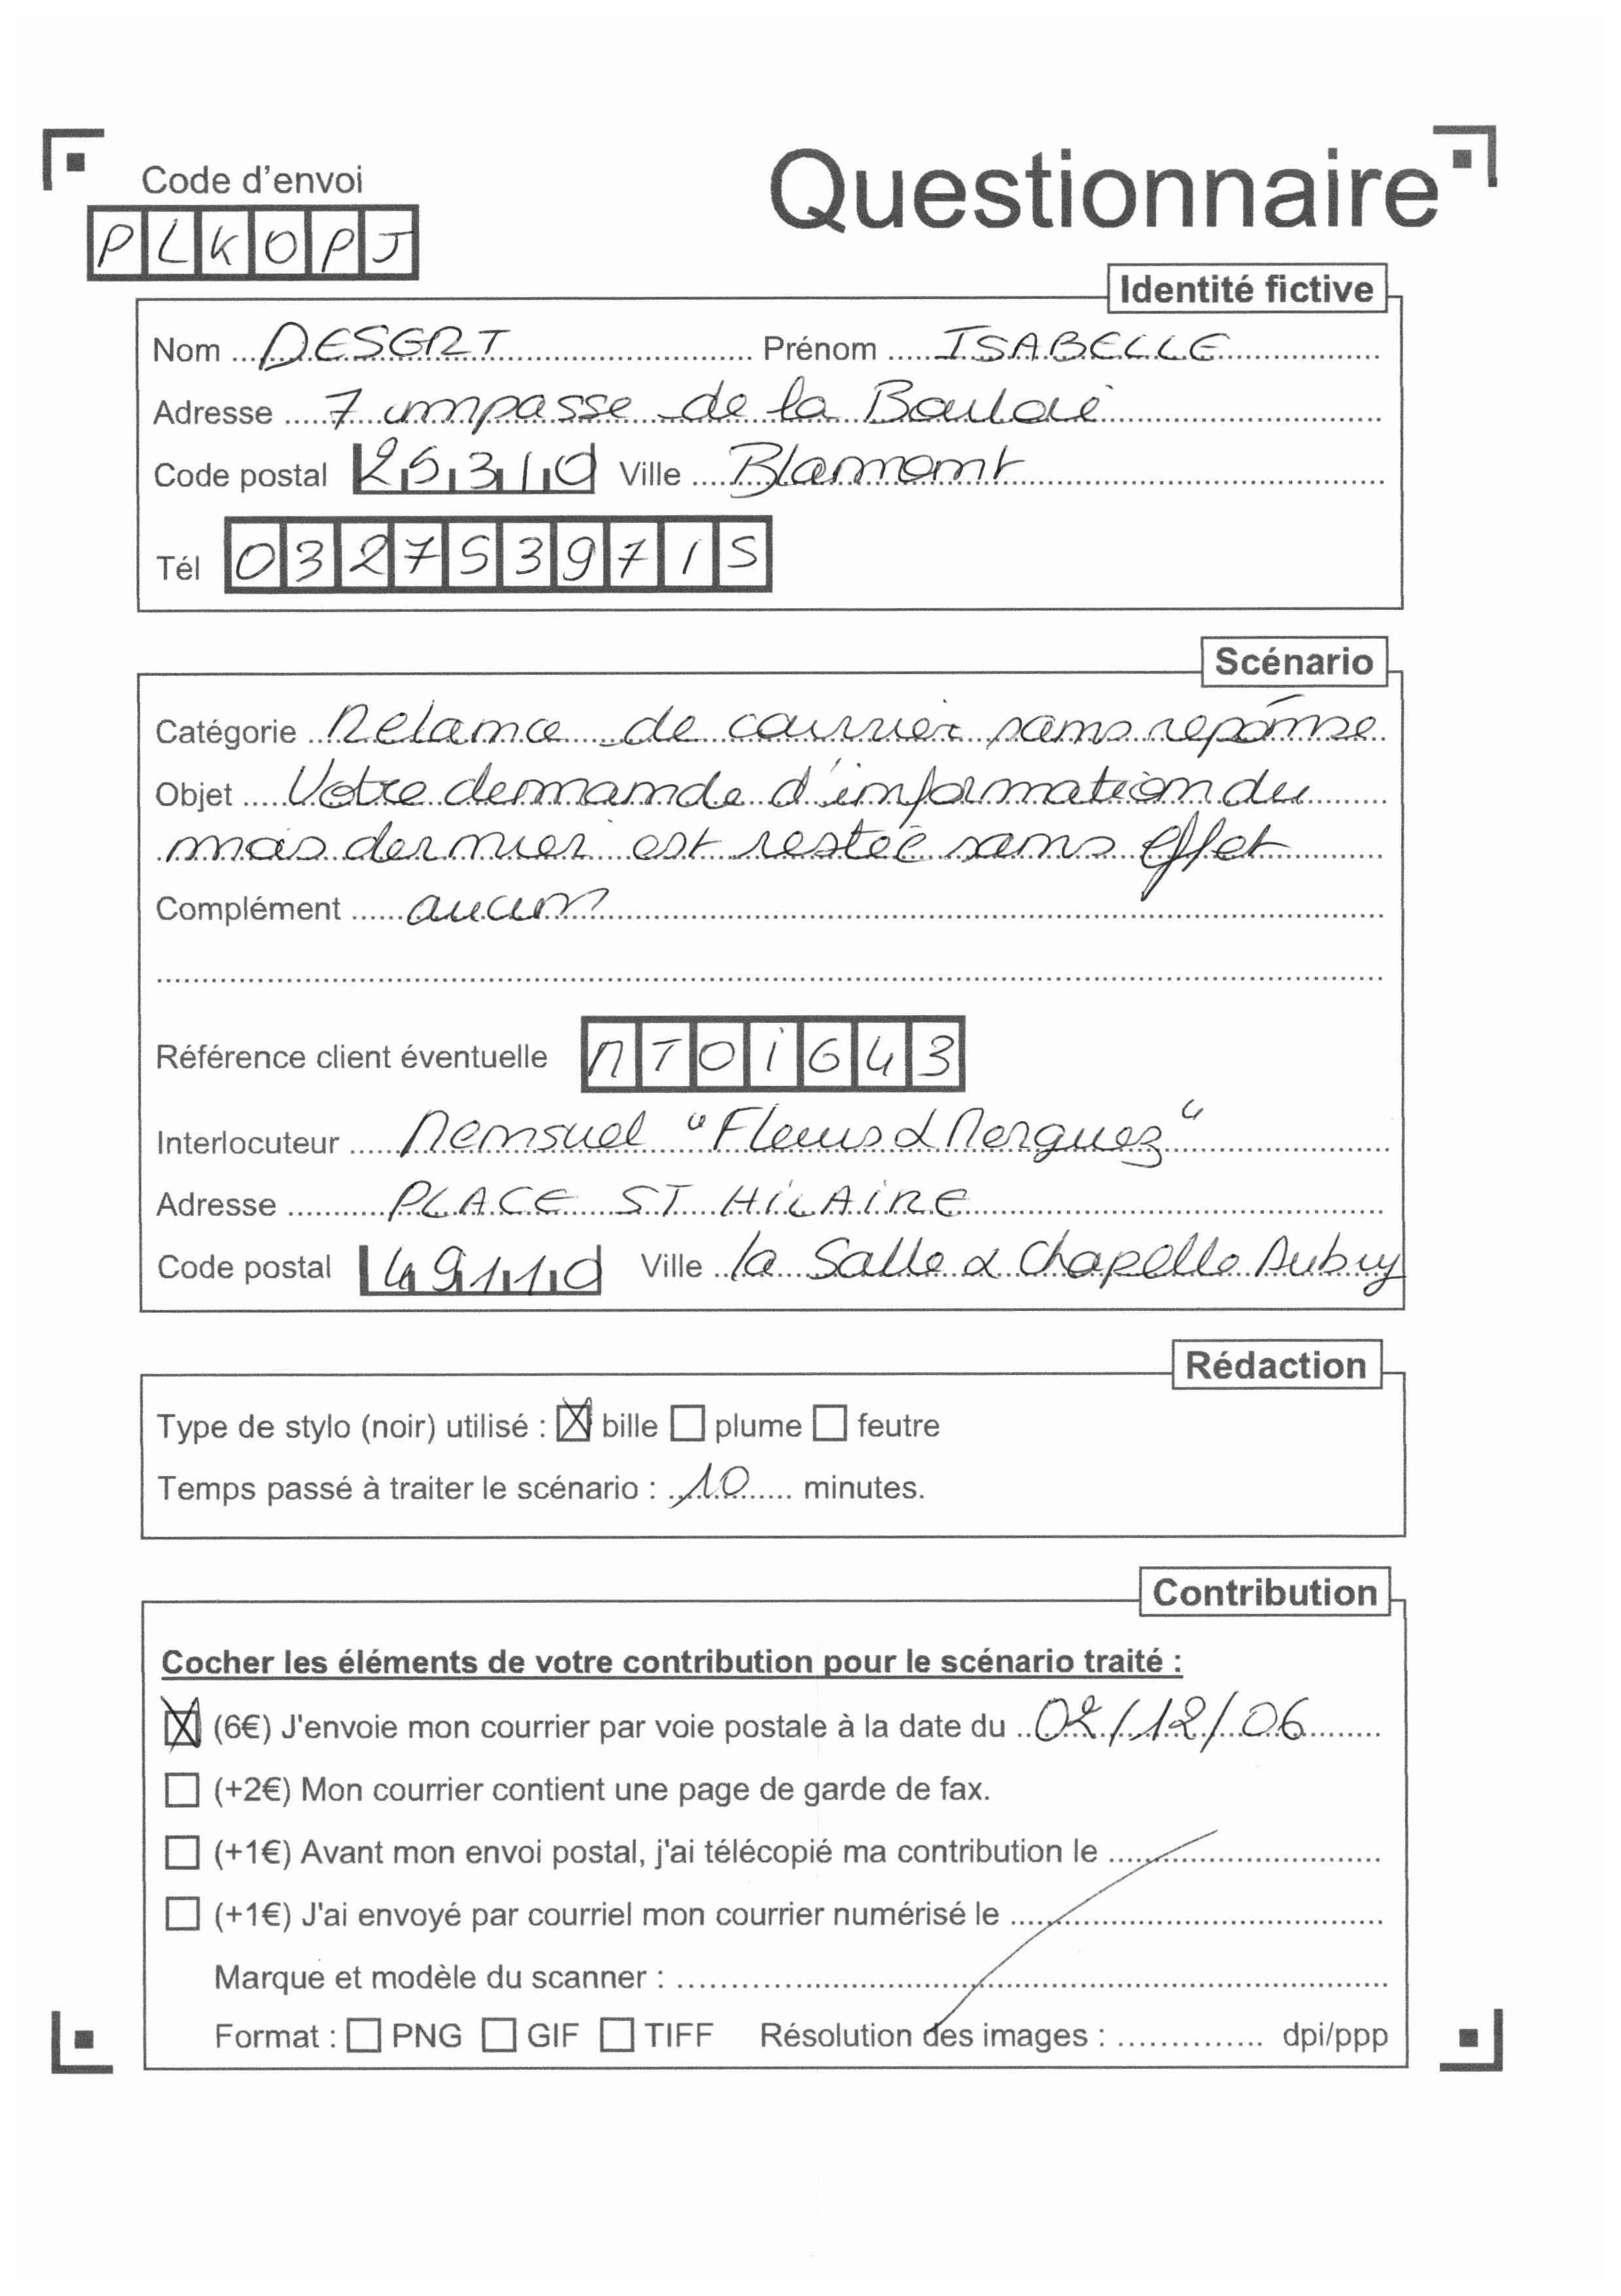 Code d'envoi
PLKOPJ
Questionnaire
Identité fictive
Nom DESERT Prénom ISABELLE
Adresse 7 impasse de la Boulaie
Code postal 25310 Ville Blamont
Tél 0327539715
Scénario
Catégorie Relance de courrier sans réponse
Objet Votre demande d'information du
mois dernier est restée sans effet
Complément aucun
Référence client éventuelle MT01643
Interlocuteur Mensuel "Fleurs & Merguez"
Adresse PLACE ST HILAIRE
Code postal 49110 Ville la Salle & Chapelle Aubry
Rédaction
Type de stylo (noir) utilisé : bille plume feutre
Temps passé à traiter le scénario : 10 minutes.
Contribution
Cocher les éléments de votre contribution pour le scénario traité :
(6€) J'envoie mon courrier par voie postale à la date du 02/12/06
(+2€) Mon courrier contient une page de garde de fax.
(+1€) Avant mon envoi postal, j'ai télécopié ma contribution le
(+1€) J'ai envoyé par courriel mon courrier numérisé le
Marque et modèle du scanner :
Format : PNG GIF TIFF Résolution des images : dpi/ppp